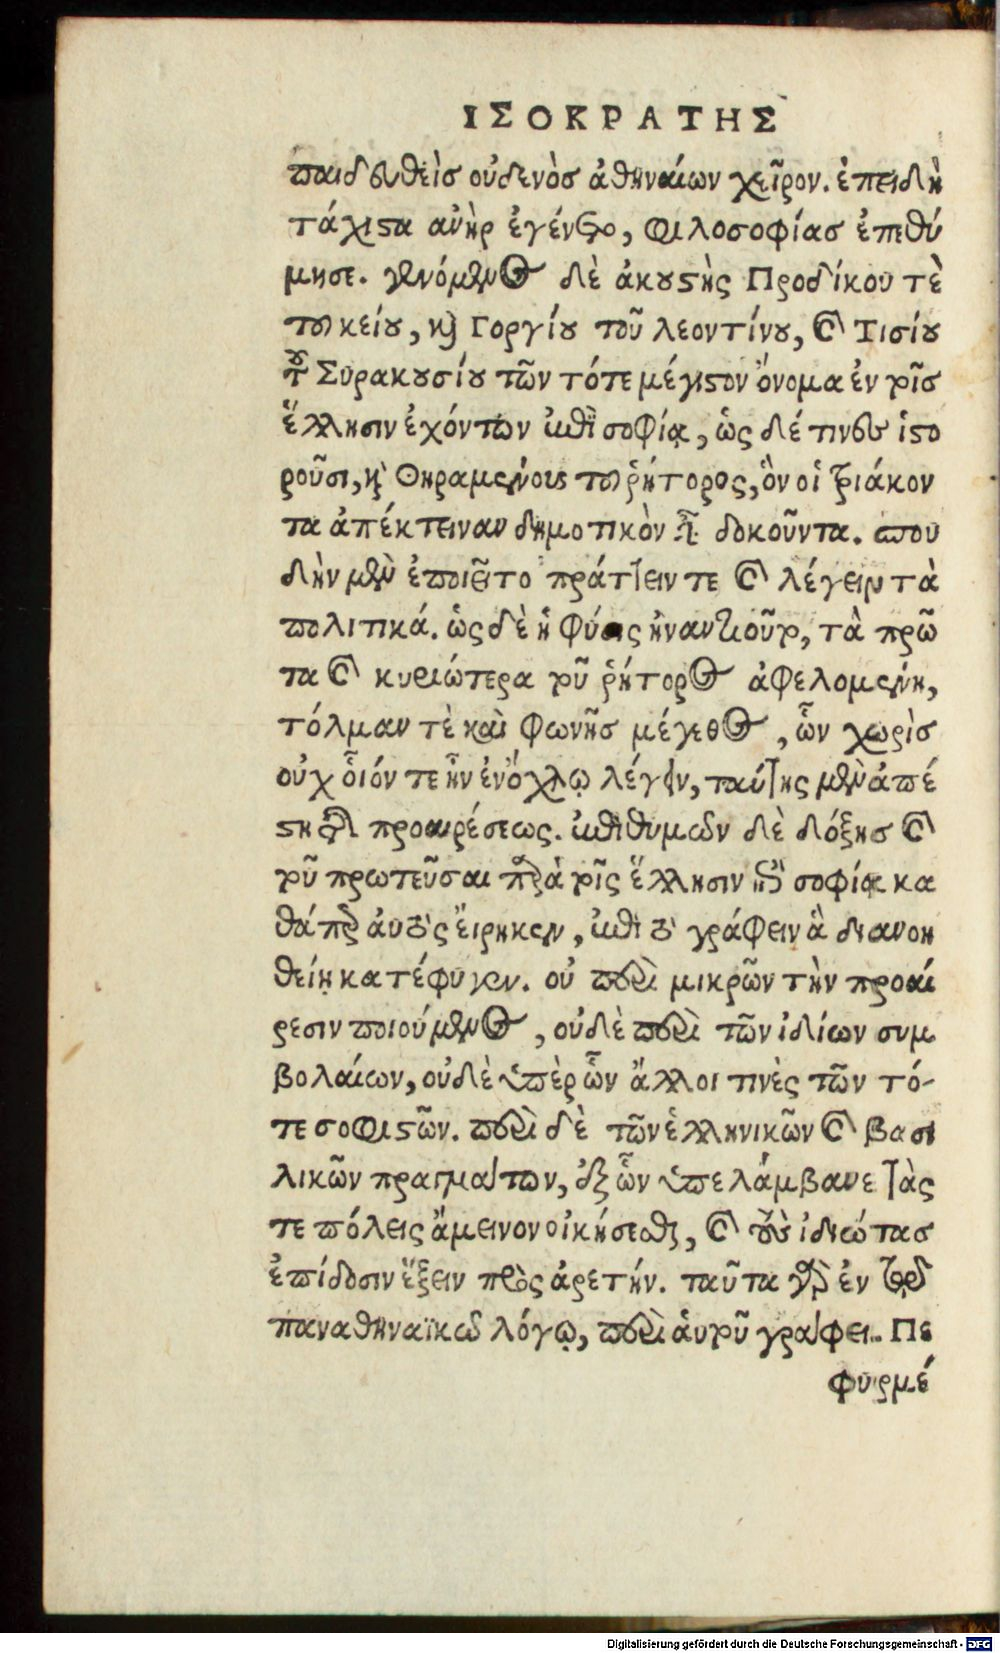 ΙΣΟΚΡΑΤΗΣ
παιδευθεὶσ οὐδενὸσ ἀθηναίων χεῖρον. ἐπειδὴ
τάχιστα ἀνὴρ ἐγένετο, φιλοσοφίασ ἐπεθύ
μησε. γενόμενος δὲ ἀκουστὴς Προδίκου τὲ
τοῦ κείου, καὶ Γοργίου τοῦ λεοντίνου, καὶ Τισίου
τοῦ Συρακουσίου τῶν τότε μέγιστον ὄνομα ἐν τοῖσ
ἕλλησιν ἐχόντων ἐπὶ σοφίᾳ, ὡς δέ τινες ἱστο
ροῦσι, καὶ Θηραμένους τοῦ ῥήτορος, ὃν οἱ τριάκον
τα ἀπέκτειναν δημοτικὸν εἶναι δοκοῦντα. σπου
δὴν μὲν ἐποιεῖτο πράττειν τε καὶ λέγειν τὰ
πολιτικά. ὡς δὲ ἡ φύσις ἠναντιοῦτο, τὰ πρῶ
τα καὶ κυριώτερα τοῦ ῥήτορος ἀφελομένη,
τόλμαν τὲ καὶ φωνῆσ μέγεθος, ὧν χωρὶσ
οὐχ οἷόν τε ἦν ἐν ὄχλῳ λέγειν, ταύτης μὲν ἀπέ
στη τῆς προαιρέσεως. ἐπιθυμῶν δὲ δόξησ καὶ
τοῦ πρωτεῦσαι παρὰ τοῖς ἕλλησιν ἐπὶ σοφίᾳ κα
θάπερ αὐτὸς εἴρηκεν, ἐπὶ τὸ γράφειν ἃ διανοη
θείη κατέφυγεν. οὐ περὶ μικρῶν τὴν προαί
ρεσιν ποιούμενος, οὐδὲ περὶ τῶν ἰδίων συμ
βολαίων, οὐδὲ ὑπὲρ ὧν ἄλλοι τινὲς τῶν τό-
τε σοφιστῶν. περὶ δὲ τῶν ἑλληνικῶν καὶ βασι
λικῶν πραγμάτων, ἐξ ὧν ὑπελάμβανε τὰς
τε πόλεις ἄμεινον οἰκήσεσθαι, καὶ τοὺς ἰδιώτασ
ἐπίδοσιν ἕξειν πρὸς ἀρετήν. ταῦτα γὰρ ἐν τῷ
παναθηναϊκῷ λόγῳ, περὶ αὑτοῦ γράφει. Πε
φυρμέ
Digitalisierung gefördert durch die Deutsche Forschungsgemeinschaft - DFG